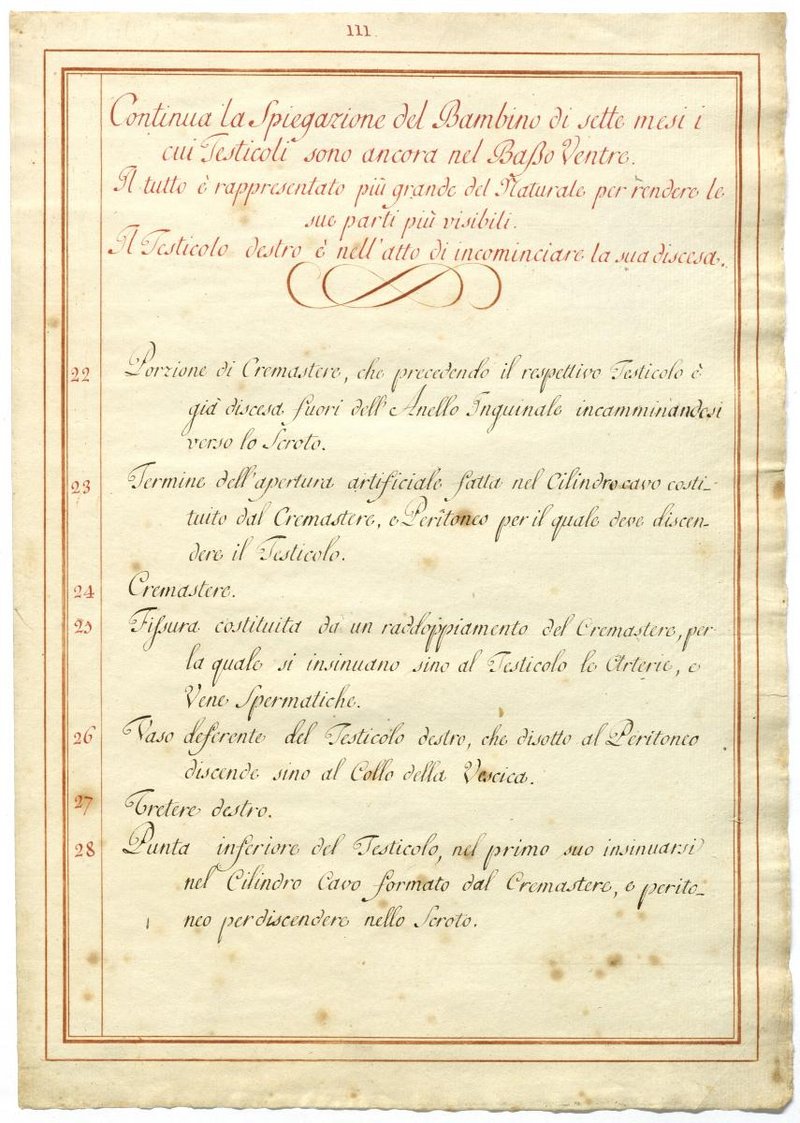 111.
Continua la Spiegazione del Bambino di sette mesi i
cui Testicoli sono ancora nel Baßo Ventre.
Il tutto è rappresentato più grande del Naturale per rendere le
sue parti più visibili.
Il Testicolo destro è nell'atto di incominciare la sua discesa.
22 Porzione di Cremastere, che precedendo il respettivo Testicolo è
già discesa fuori dell'Anello Inguinale incamminandesi
verso lo Scroto.
23 Termine dell'apertura artificiale fatta nel Cilindro cavo costi-
tuito dal Cremastere, e Peritoneo per il quale deve discen-
dere il Testicolo.
24 Cremastere.
25 Fiſsura costituita da un raddoppiamento del Cremastere, per
la quale si insinuano sino al Testicolo le Arterie, e
Vene Spermatiche.
26 Vaso deferente del Testicolo destro, che disotto al Peritoneo
discende sino al Collo della Vescica.
27 Uretere destro.
28 Punta inferiore del Testicolo, nel primo suo insinuarsi
nel Cilindro Cavo formato dal Cremastere, e perito-
neo per discendere nello Scroto.